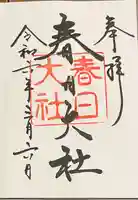 奉拝
春日大社
春日
大社
令和 年 月六日